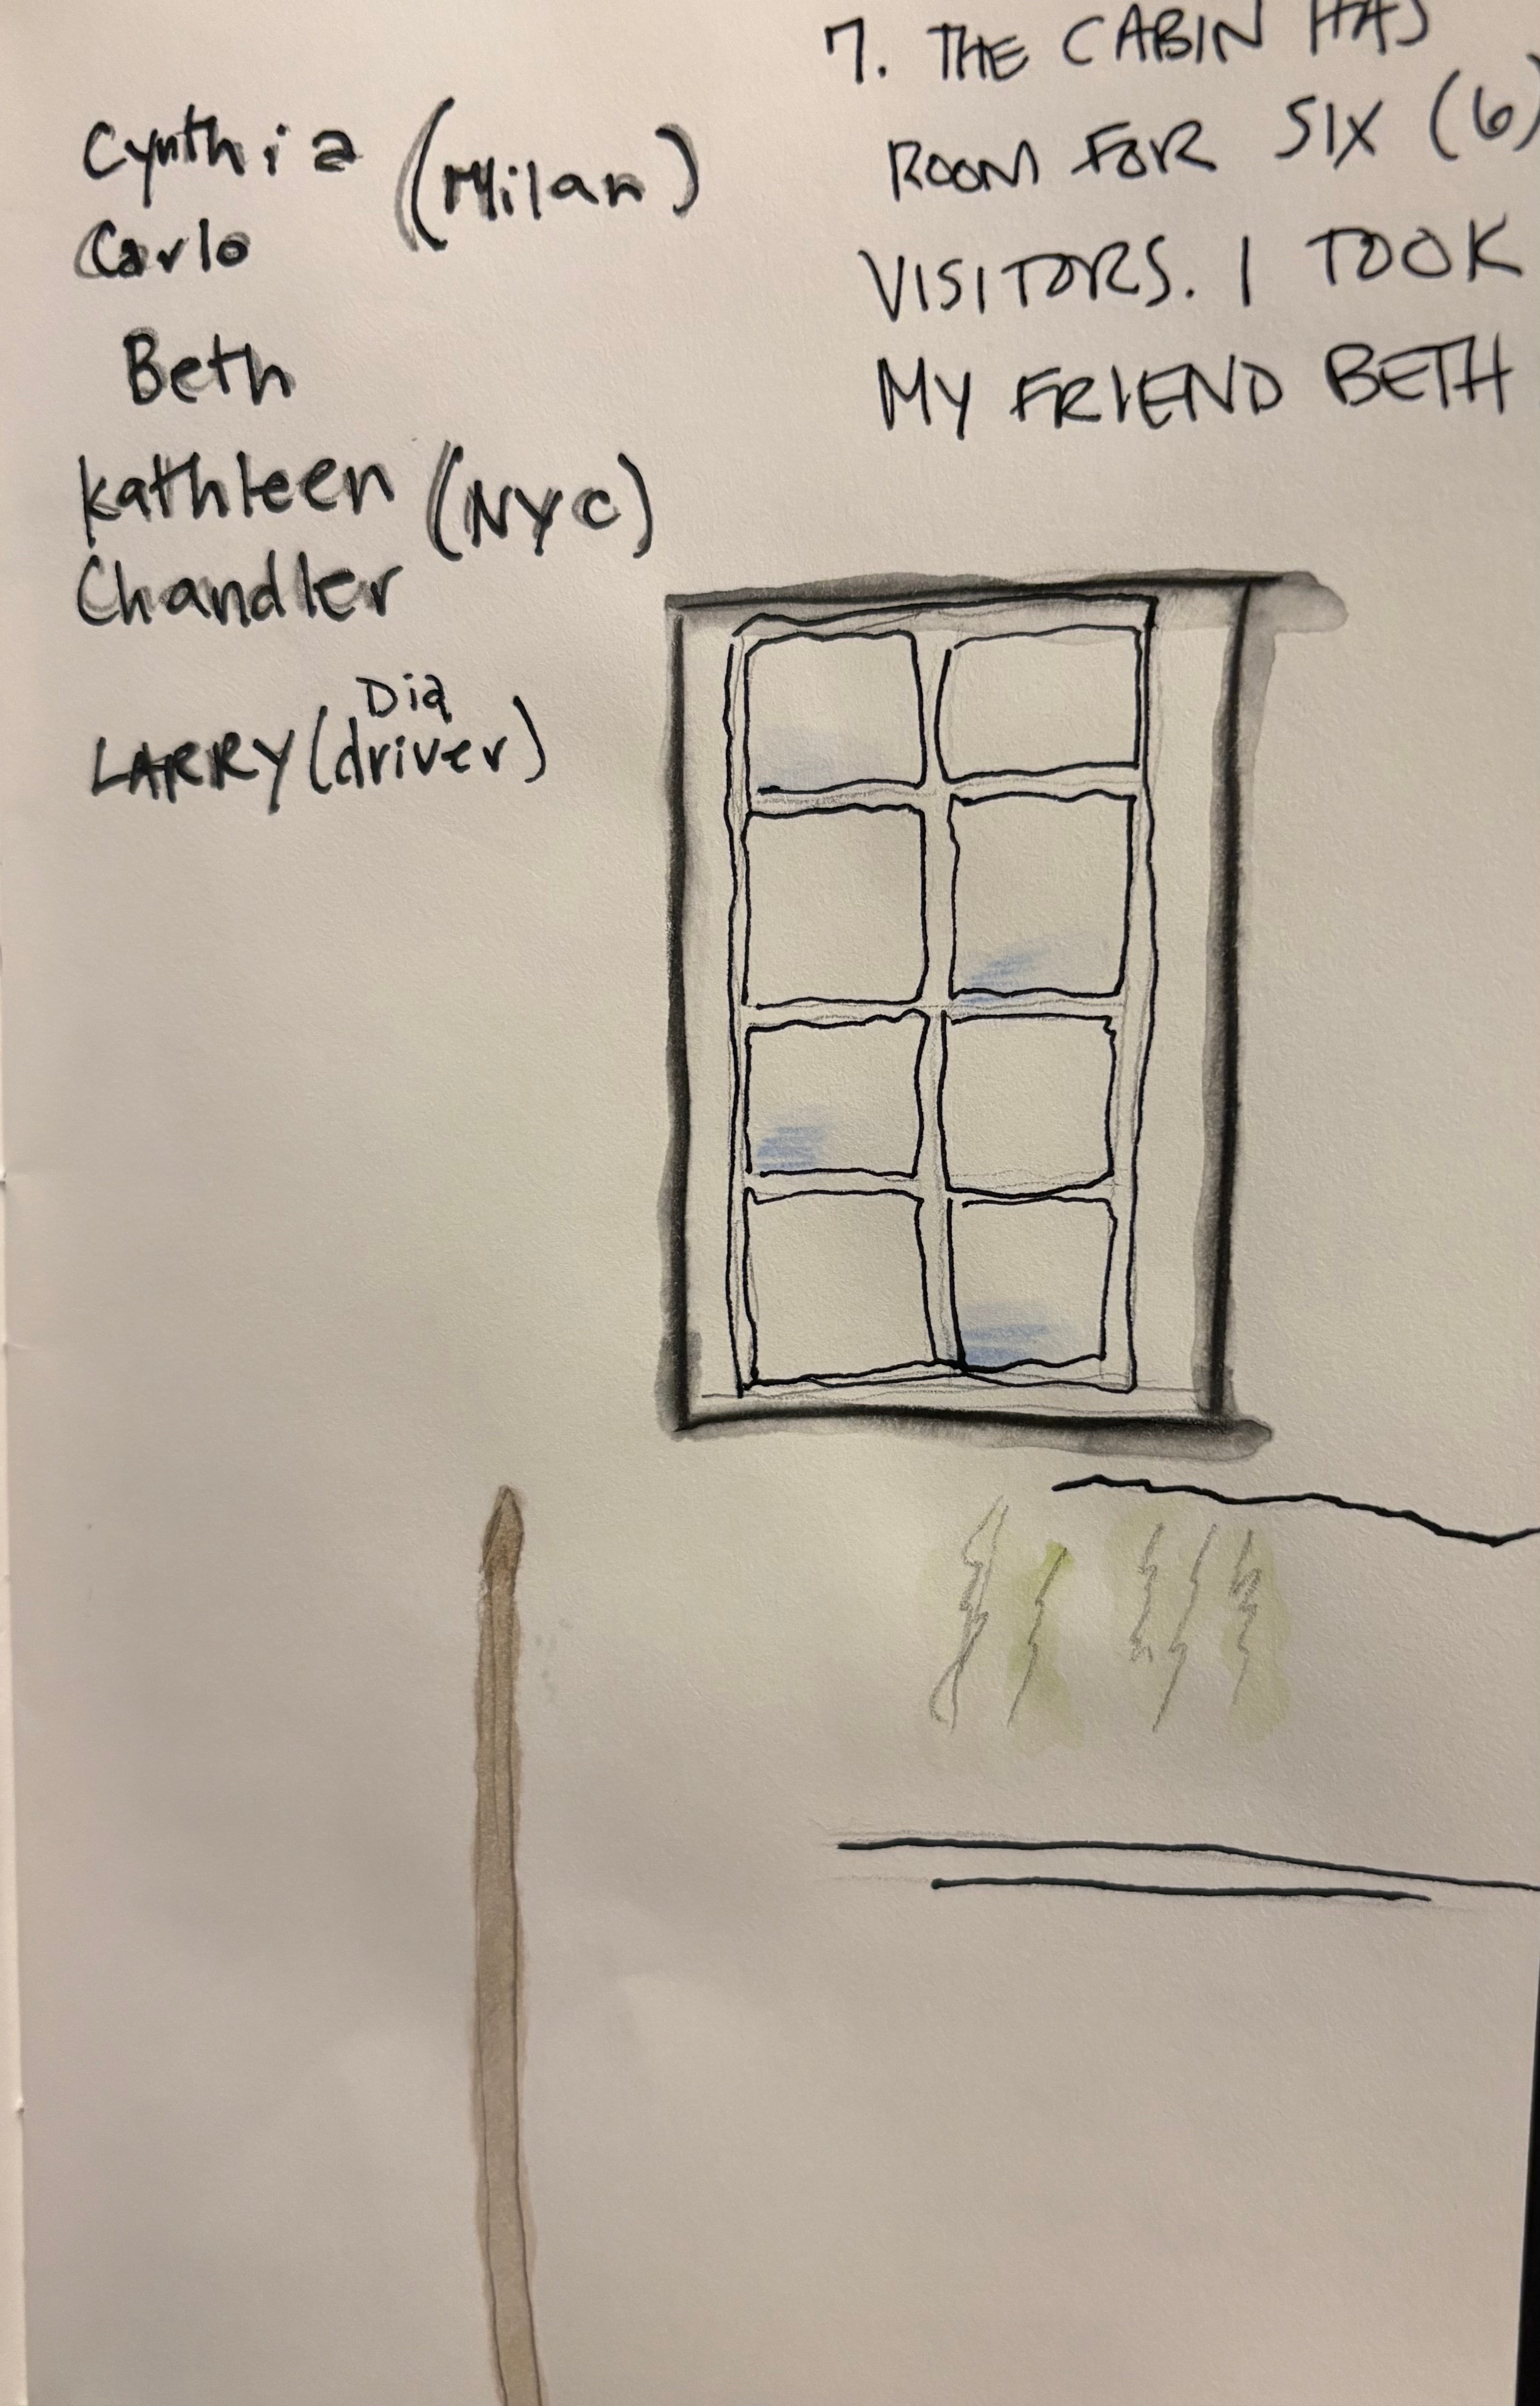 Cynthia (Milan)
Carlo
Beth
Kathleen (NYC)
Chandler
Dia
LARRY (driver)
7. THE CABIN HAS
ROOM FOR SIX (6)
VISITORS. I TOOK
MY FRIEND BETH